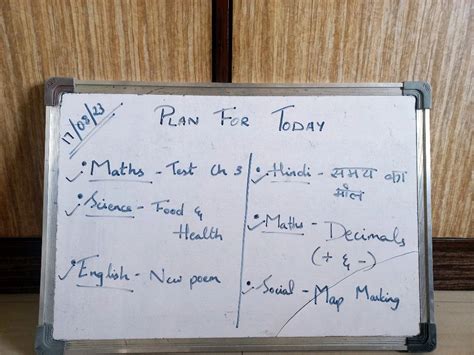 17/08/23
PLAN FOR TODAY
Maths - Test Ch 3
Science - Food &
Health
English - New poem
Hindi - समय का
मोल
Maths - Decimals
(+ & -)
Social - Map Marking